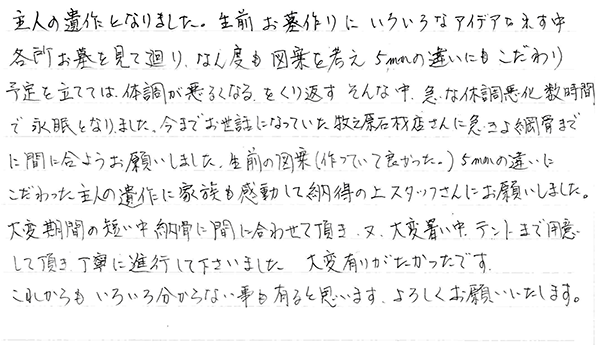 主人の遺作となりました。生前お墓作りにいろいろなアイデアをねす中
各所お墓を見て廻り、なん度も図案を考え 5mmの違いにもこだわり
予定を立てては、体調が悪るくなる、をくり返す そんな中、急な体調悪化、数時間
で永眠となりました。今までお世話になっていた、牧之原石材店さんに急きょ納骨まで
に間に合うようお願いしました。生前の図案（作っていて良かった。）5mmの違いに
こだわった主人の遺作に家族も感動して納得の上スタッフさんにお願いしました。
大変期間の短い中納骨に間に合わせて頂き、又、大変暑い中、テントまで用意
して頂き、丁寧に進行して下さいました。大変有りがたかったです。
これからもいろいろ分からない事も有ると思います。よろしくお願いいたします。